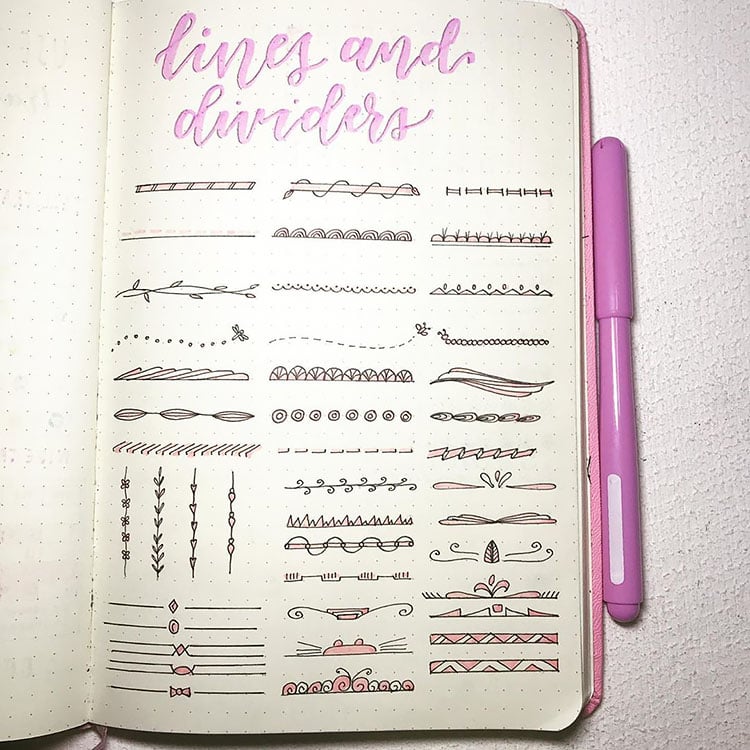 lines and
dividers